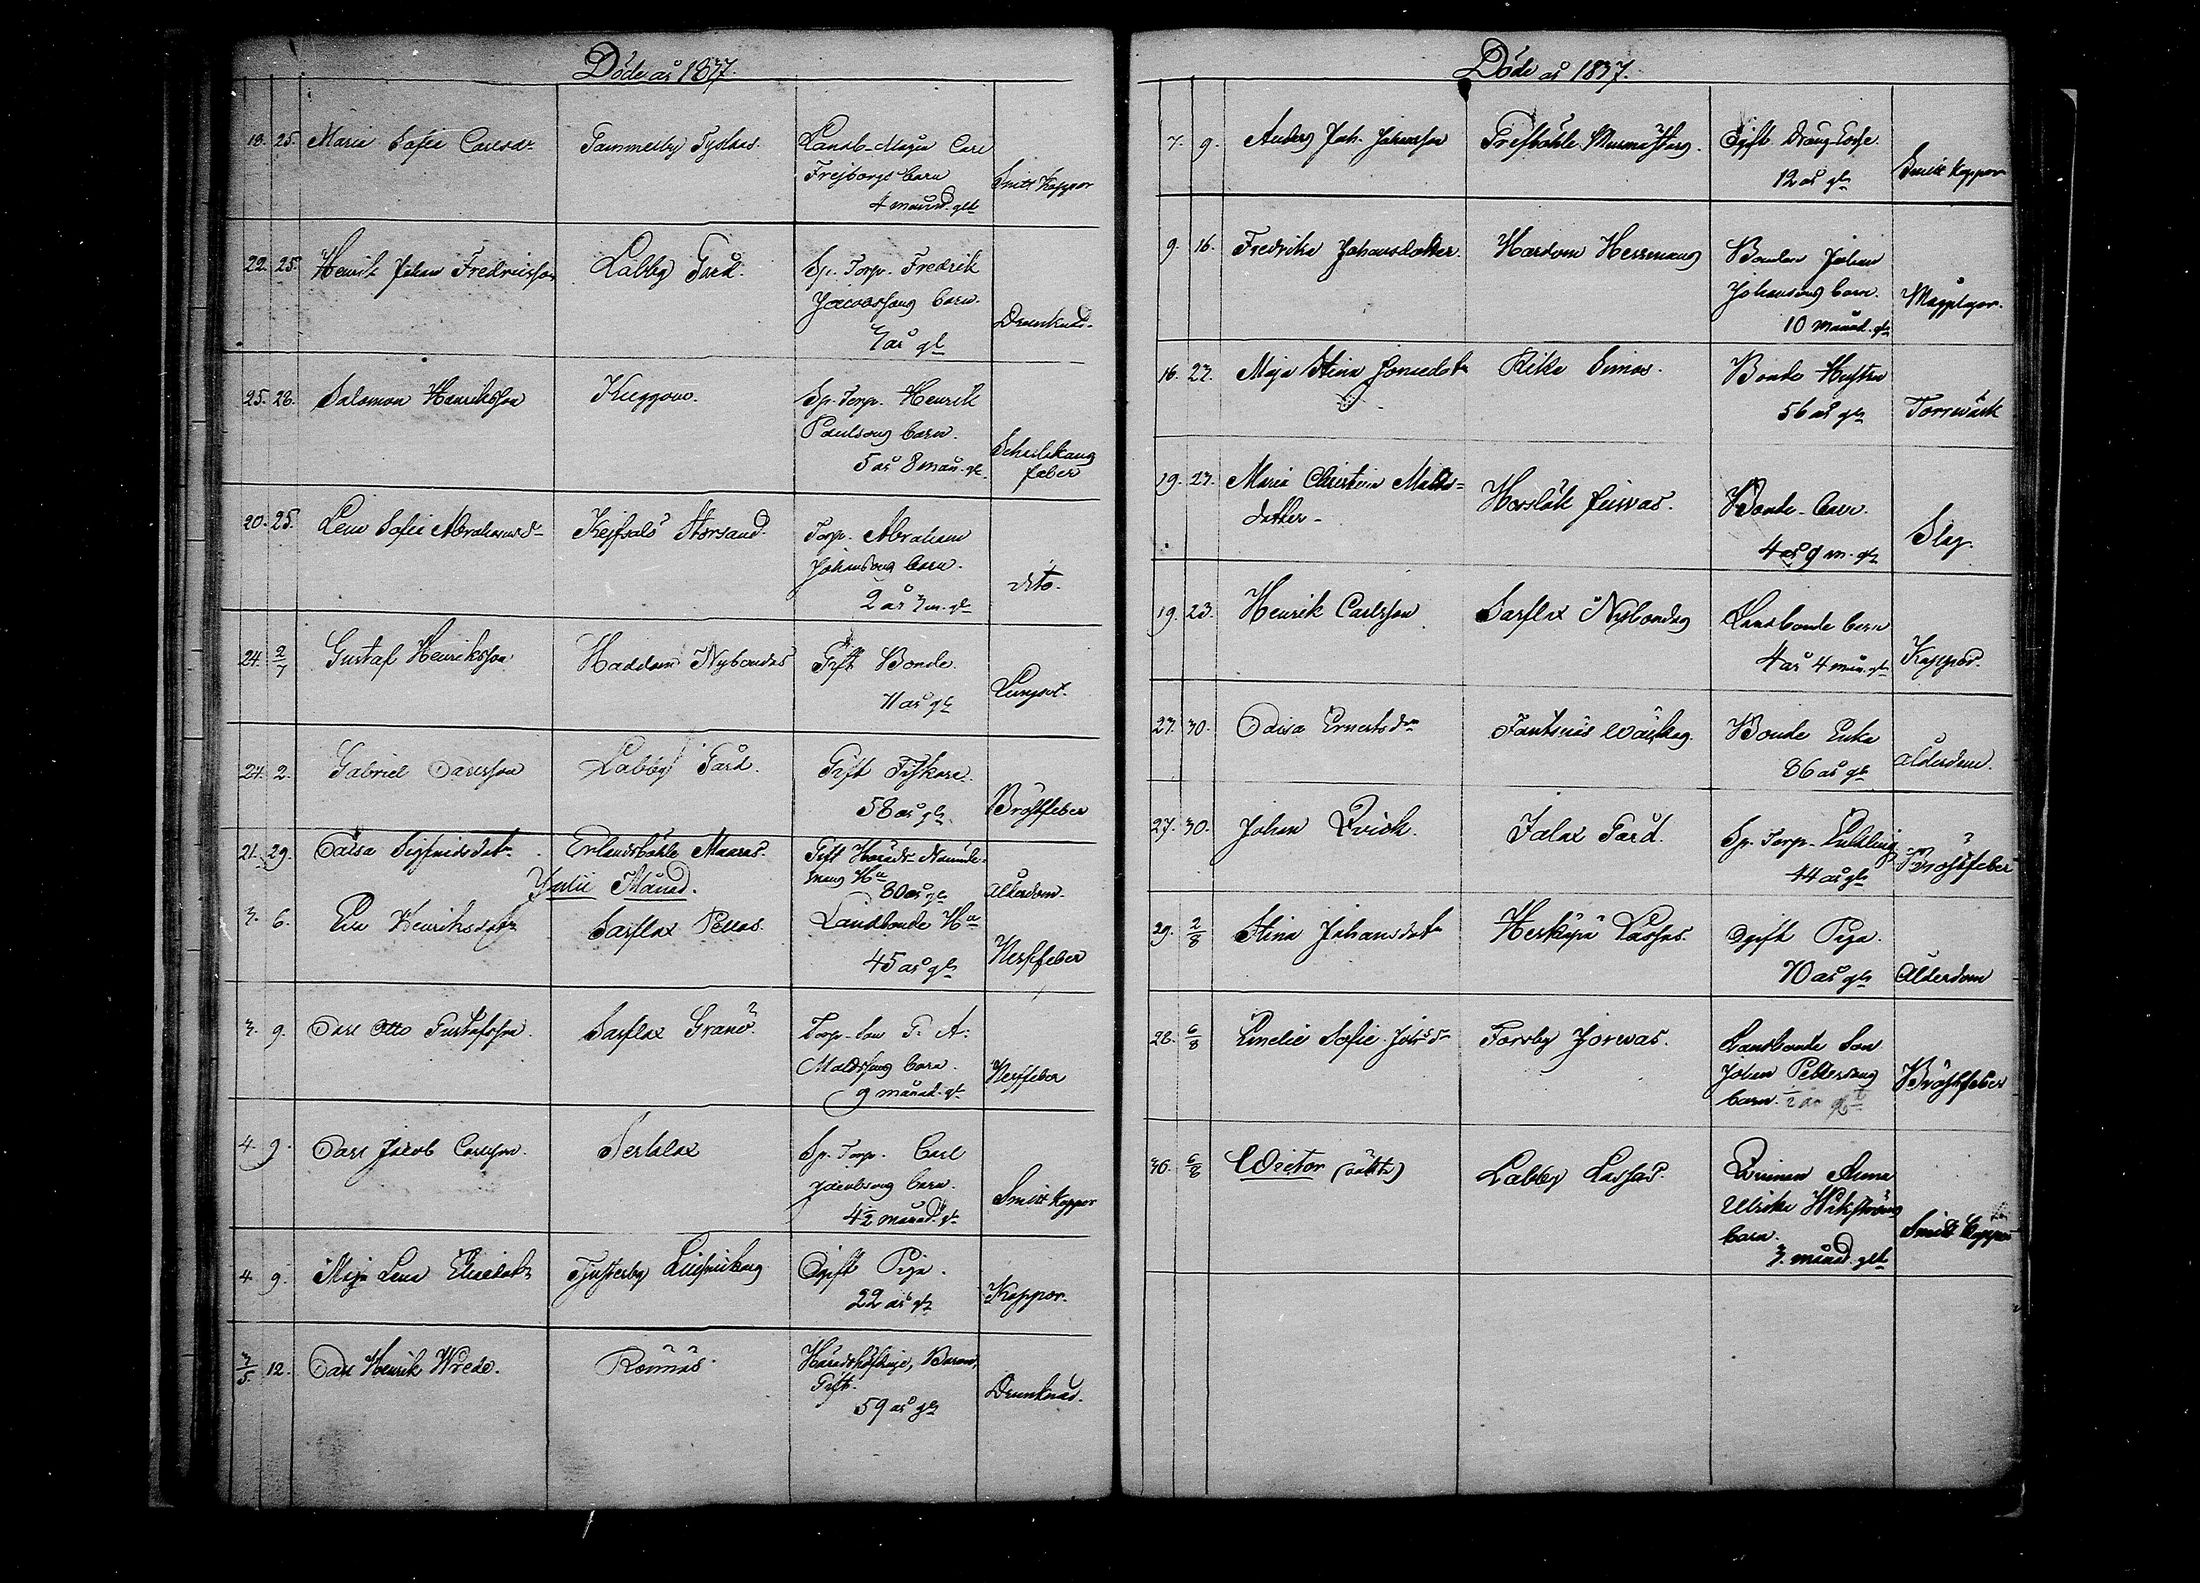 Döde år 1837.
18. 25. Maria Sofia Carlsdr Tammerby Tyskas. Landb. Mågen Carl
Frejborgs barn
4 månad. glt
Smitt Koppor
22. 25. Henrik Johan Fredricsson Labby Gård. Sp. Torp. Fredrik
Jacobssons barn.
7 år gl
Drunknad.
25. 28. Salomon Henriksson Kuggom. Sp. Torp. Henrik
Paulsons barn.
5 år 8 mån. gl.
Scharlakans
feber
20. 25. Lena Sofia Abrahamsdr Kejfsalö Storsand. Torp. Abraham
Johansons barn.
2 år 3 m. gl.
dito.
24. 2/7 Gustaf Henriksson Haddom Nybondas Gift Bonde.
71 år gl
Lungsot.
24. 2. Gabriel Carlsson Labby Gård. Gift Fiskare.
58 år gl.
Bröstfeber
21. 29. Caisa Sigfridsdotr. Erlandsböhle Maaras. Gift Härads Nämnde-
mans Ha
80 år gl.
Ålderdom.
Julii Månad.
3. 6. Eva Henriksdotr Sarflax Pellas. Landbonde Ha
45 år gl
Nerffeber
3. 9. Carl Otto Gustafsson. Sarflax Granö. Torp. Son G. A.
Maldssons barn.
9 månad. gl.
Nerffeber
4. 9. Carl Jacob Carlsson. Serlalax Sp. Torp. Carl
Jacobsons barn.
4½ månad. gl.
Smitt Koppor
4. 9. Maja Lena Eliædotr Tjusterby Ogift Piga.
22 år gl
Koppor.
3/5. 12. Carl Henrik Wrede. Rönnäs. Häradshöfdinge, Baron,
Gift.
59 år gl
Drunknad.
Döde år 1837.
7. 9. Anders Joh. Johansson Tresböhle Murmästars. Ogift
12 år gl
Smitt koppor
9. 16. Fredrika Johansdotter. Hardom Hessmans Bonden Johan
Johansons barn.
10 månad. gl.
Mässlingor.
16. 23. Maja Stina Jonsedotr Rike Simos. Bonde Hustru
56 år gl
Torrwärk
19. 23. Maria Christina Malds=
dotter. Horslök Bonde-barn.
4 år 9 m. gl
Slag.
19. 23. Henrik Carlsson Sarflax Nybondas Landbonde barn
4 år 4 mån. gl
Koppor.
27. 30. Caisa Ernertsdr Fantsnäs Bonde Enka
86 år gl
Ålderdom.
27. 30. Johan Qvick. Isalax Gård. Sp. Torp.
44 år gl
Bröstfeber
29. 2/8 Stina Johansdotr Herkepä Lassas. Ogift Piga.
70 år gl
Ålderdom
28. 6/8 Emelie Sofie Johsdr Forsby Jorwas. Landbonde Son
Johan Pettersons
barn. ½ år glt
Bröstfeber
30. 6/8 Wictor (oäkta) Labby Lassas. Qvinnan Anna
Ulrika Wikströms
barn.
3. månad. glt
Smitt koppor